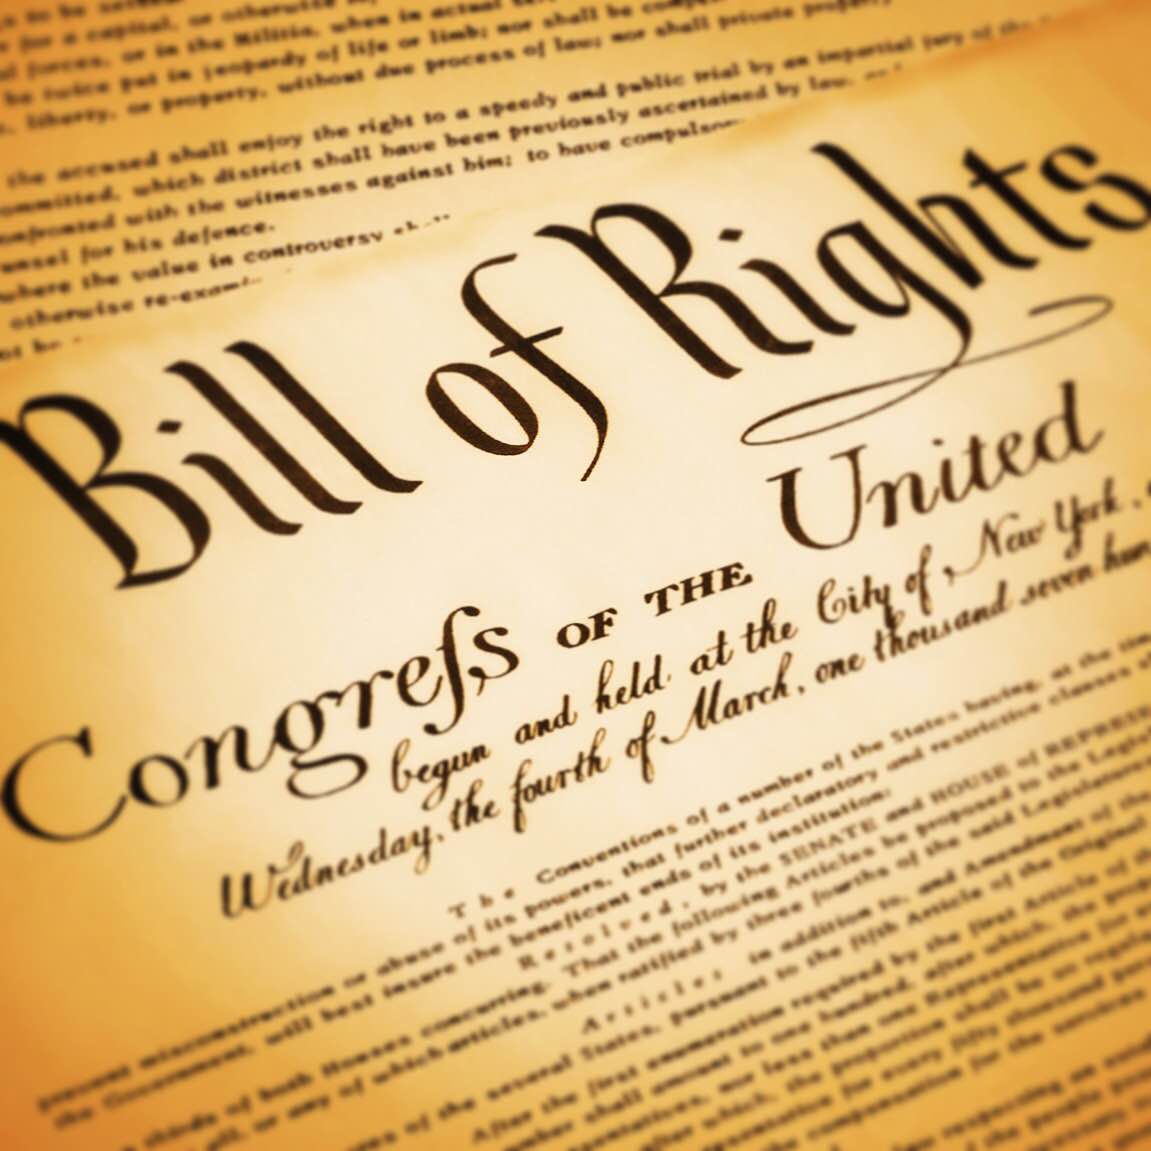 for a capital, or otherwise
forces, or in the Militia, when in actual
be twice put in jeopardy of life or limb; nor shall be
liberty, or property, without due process of law; nor shall private property
the accused shall enjoy the right to a speedy and public trial by an impartial jury of the
ommitted, which district shall have been previously ascertained by law,
onfronted with the witnesses against him; to have compulsory
unsel for his defence.
where the value in controversy shall
otherwise re-exami
ot be
Bill of Rights
Congreſs OF THE United
begun and held at the City of New York,
Wednesday, the fourth of March, one thousand seven hun
The Conventions of a number of the States having, at the tim
prevent misconstruction or abuse of its powers, that further declaratory and restrictive clauses
the Government, will best insure the beneficent ends of its institution:
Resolved, by the SENATE and HOUSE of REPRESE
thirds of both Houses concurring, That the following Articles be proposed to the Legisl
all, or any of which articles, when ratified by three fourths of the said Legislatures
Articles in addition to, and Amendment of the
of the several States, pursuant to the fifth Article of the Original
After the first enumeration required by the first Article of the
mber shall amount to one hundred, after which, the prop
sentatives, nor less than one Representative for
after which, the proportion shall be so regula
sentative for every fifty thousand per
the compensation for the services
respecting an
the people